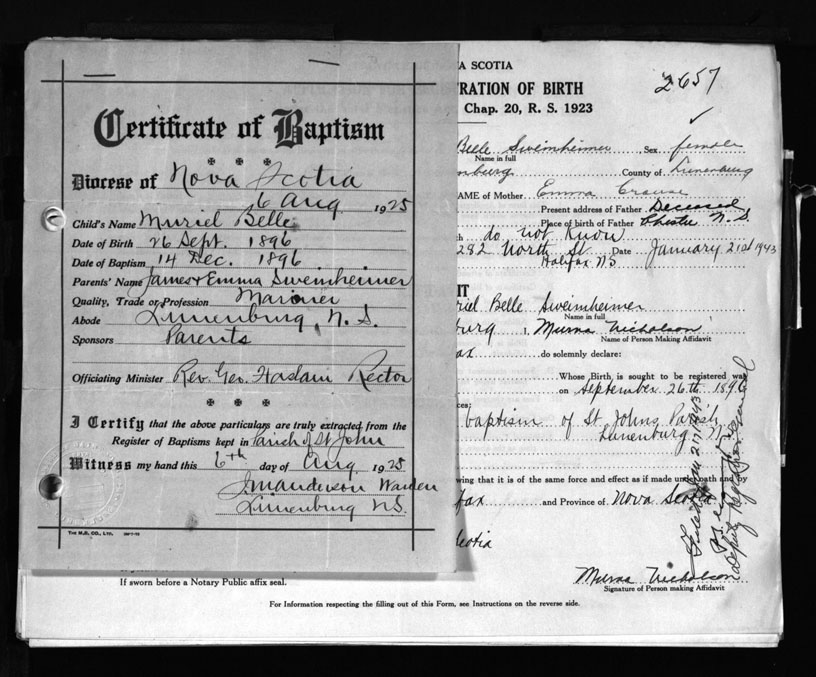 Certificate of Baptism
Diocese of Nova Scotia
6 Aug 1925
Child's Name Muriel Belle
Date of Birth 26 Sept. 1896
Date of Baptism 14 Dec. 1896
Parents' Name James & Emma Sweinheimer
Quality, Trade or Profession Mariner
Abode Lunenburg, N. S.
Sponsors Parents
Officiating Minister Rev. Geo. Haslam Rector
I Certify that the above particulars are truly extracted from the
Register of Baptisms kept in Parish of St John
Witness my hand this 6th day of Aug 1925
Warden
Lunenburg NS.
THE M.D. CO., LTD.
A SCOTIA
TRATION OF BIRTH
Chap. 20, R. S. 1923
2657
Belle Sweinheimer Sex female
Name in full
nburg County of Lunenburg
AME of Mother Emma Crouse
Present address of Father Deceased
Place of birth of Father Chester N. S.
ch do not know
282 North St Date January 21st 1943
Halifax NS
IT
riel Belle Sweinheimer
Name in full
burg I, Murna Nicholson
Name of Person Making Affidavit
ax do solemnly declare:
Whose Birth is sought to be registered was
on September 26th 1896
ces:
baptism of St Johns Parish
Lunenburg N.
wing that it is of the same force and effect as if made under oath and by
fax and Province of Nova Scotia
Scotia
Murna Nicholson
Signature of Person making Affidavit
If sworn before a Notary Public affix seal.
For Information respecting the filling out of this Form, see Instructions on the reverse side.
Deputy Registrar General